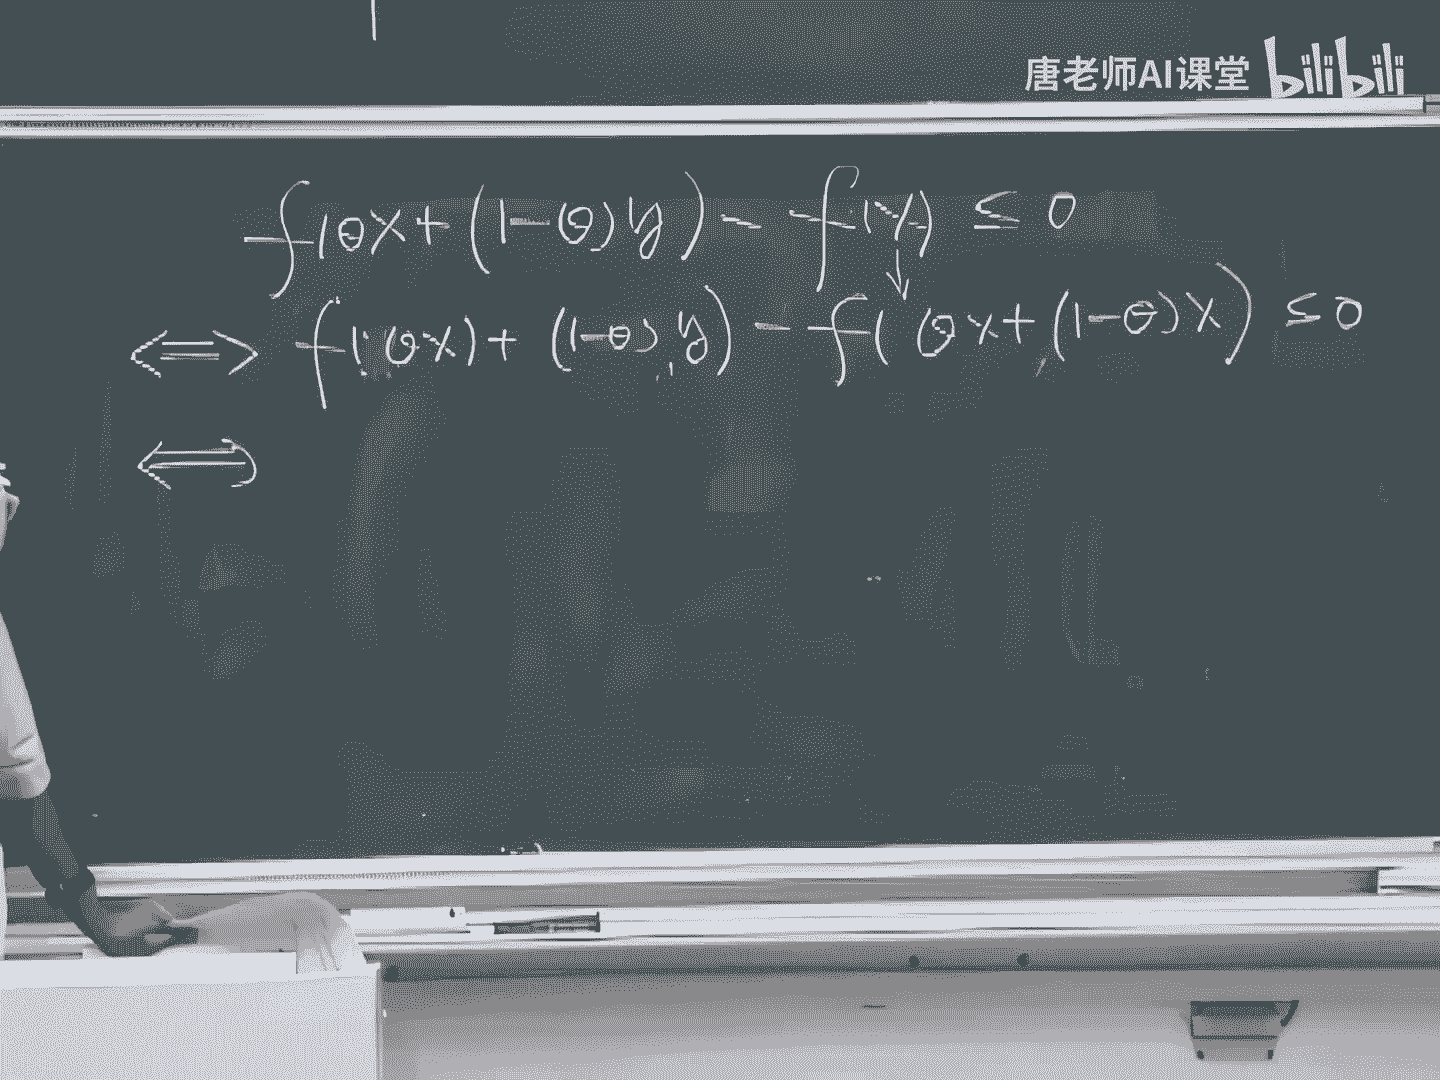 唐老师AI课堂 bilibili
f(θx+(1-θ)y) - f(x) ≤ 0
⟺ f((θx)+(1-θ)y) - f(θx+(1-θ)x) ≤ 0
⟺